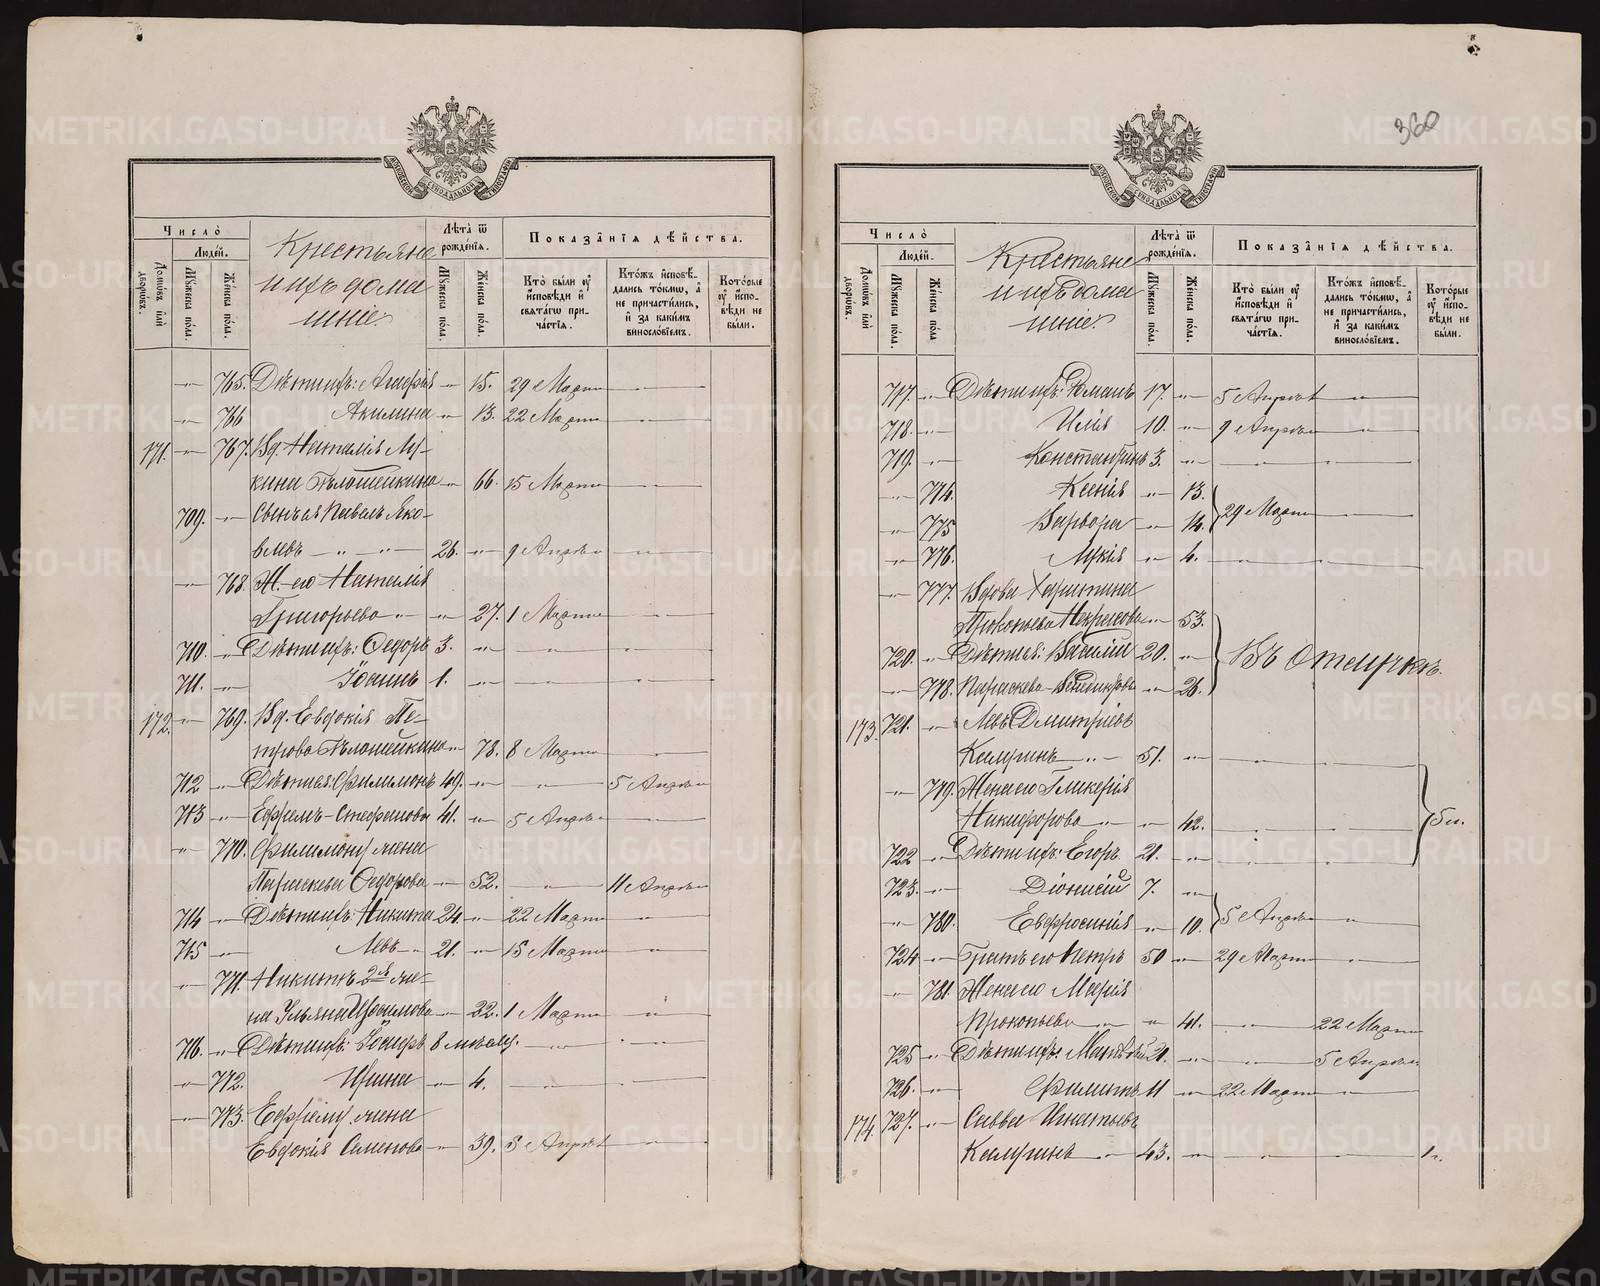 360
МОСКОВСКОЙ СИНОДАЛЬНОЙ ТИПОГРАФІИ
Число̀
Людéй.
Домѡвъ илѝ дворѡвъ.
Мꙋжеска пóла.
Жéнска пóла.
Крестьяне
и ихъ дома
шніе.
Лѣта̀ ѿ рождéнїѧ.
Мꙋжеска пóла.
Жéнска пóла.
Показа́нїѧ дѣ́йства.
Ктò бы́ли ᲂу҆ и҆сповѣди и҆ свѧта́гѡ причáстїѧ.
Ктóжъ и҆сповѣ́дались тóкмѡ, а҆ не причасти́лись, и҆ за каки́мъ винослóвїемъ.
Котóрые ᲂу҆ и҆сповѣди не бы́ли.
-„- 765. Дѣти ихъ: Агафія -„- 15. 29 Марта -„-
-„- 766 Акилина -„- 13. 22 Марта -„-
171. -„- 767. Вд. Наталія Лу-
кина Бѣлошейкина -„- 66. 15 Марта -„-
709. -„- Сынъ ея Павелъ Яко-
влевъ -„- „- 26. -„- 9 Апрѣля -„-
-„- 768. Ж. его Наталія
Григорьева -„- „- 27. 1 Марта -„-
710. -„- Дѣти ихъ: Ѳедоръ 3. -„- -„- -„-
711. -„- Іоаннъ 1. -„- -„- -„-
172. -„- 769. Вд. Евдокія Пе-
трова Бѣлошейкина -„- 78. 8 Марта -„-
712 -„- Дѣти ея: Филимонъ 49. -„- -„- 5 Апрѣля
713 -„- Ефремъ - Стефановы 41. -„- 5 Апрѣля -„-
-„- 770. Филимону жена
Параскева Ѳедорова -„- 52. -„- 11 Апрѣля
714 -„- Дѣти ихъ: Никита 24 -„- 22 Марта -„-
715 -„- Левъ -„- 21. -„- 15 Марта -„-
-„- 771. Никитѣ 2я же-
на Ульяна -„- 22. 1 Марта -„-
716. -„- Дѣти ихъ: Іосифъ 8 мѣсяц. -„- -„-
-„- 772. Ирина -„- 4. -„- -„-
-„- 773. Ефрему жена
Евдокія Семенова -„- 39. 5 Апрѣля -„-
МОСКОВСКОЙ СИНОДАЛЬНОЙ ТИПОГРАФІИ
Число̀
Людéй.
Домѡвъ илѝ дворѡвъ.
Мꙋжеска пóла.
Жéнска пóла
Крестьяне
и ихъ дома
шніе.
Лѣта̀ ѿ рождéнїѧ.
Мꙋжеска пóла.
Жéнска пóла.
Показа́нїѧ дѣ́йства.
Ктò бы́ли ᲂу҆ и҆сповѣди и҆ свѧта́гѡ причáстїѧ.
Ктóжъ и҆сповѣ́дались тóкмѡ, а҆ не причасти́лись, и҆ за каки́мъ винослóвїемъ.
Котóрые ᲂу҆ и҆сповѣди не бы́ли.
717. -„- Дѣти ихъ: Романъ 17. -„- 5 Апрѣля -„-
718. -„- Илія 10. -„- 9 Апрѣля -„-
719. -„- Константинъ 3. -„- -„- -„-
-„- 774. Ксенія -„- 13.
-„- 775 Варвара -„- 12. 29 Марта -„-
-„- 776. Лукія -„- 4. -„- -„-
-„- 777. Вдова Харитина
Прокопьева Некрасова -„- 53.
720. -„- Дѣти ея: Василій 20. -„- Въ отлучкѣ.
-„- 778. Параскева -„- 26.
173. 721. -„- Левъ Дмитріевъ
Калугинъ -„- 51. -„- -„- -„-
-„- 779. Жена его Гликерія
Никифорова -„- „- 42. -„- -„- 5 л.
722 -„- Дѣти ихъ: Егоръ 21. -„- -„- -„-
723. -„- Діонисій 7. -„-
-„- 780. Евфросинія -„- 10. 5 Апрѣля -„-
724 -„- Братъ его Петръ 50 -„- 29 Марта -„-
-„- 781. Жена его Марія
Прокопьева -„- „- 41. -„- 22 Марта
725 -„- Дѣти ихъ: Матѳей 21. -„- -„- 5 Апрѣля
726. -„- Филиппъ 11 -„- 22 Марта -„-
174. 727. -„- Савва Игнатьевъ
Калугинъ -„- 43. -„- -„- -„- 1 г.
METRIKI.GASO-URAL.RU